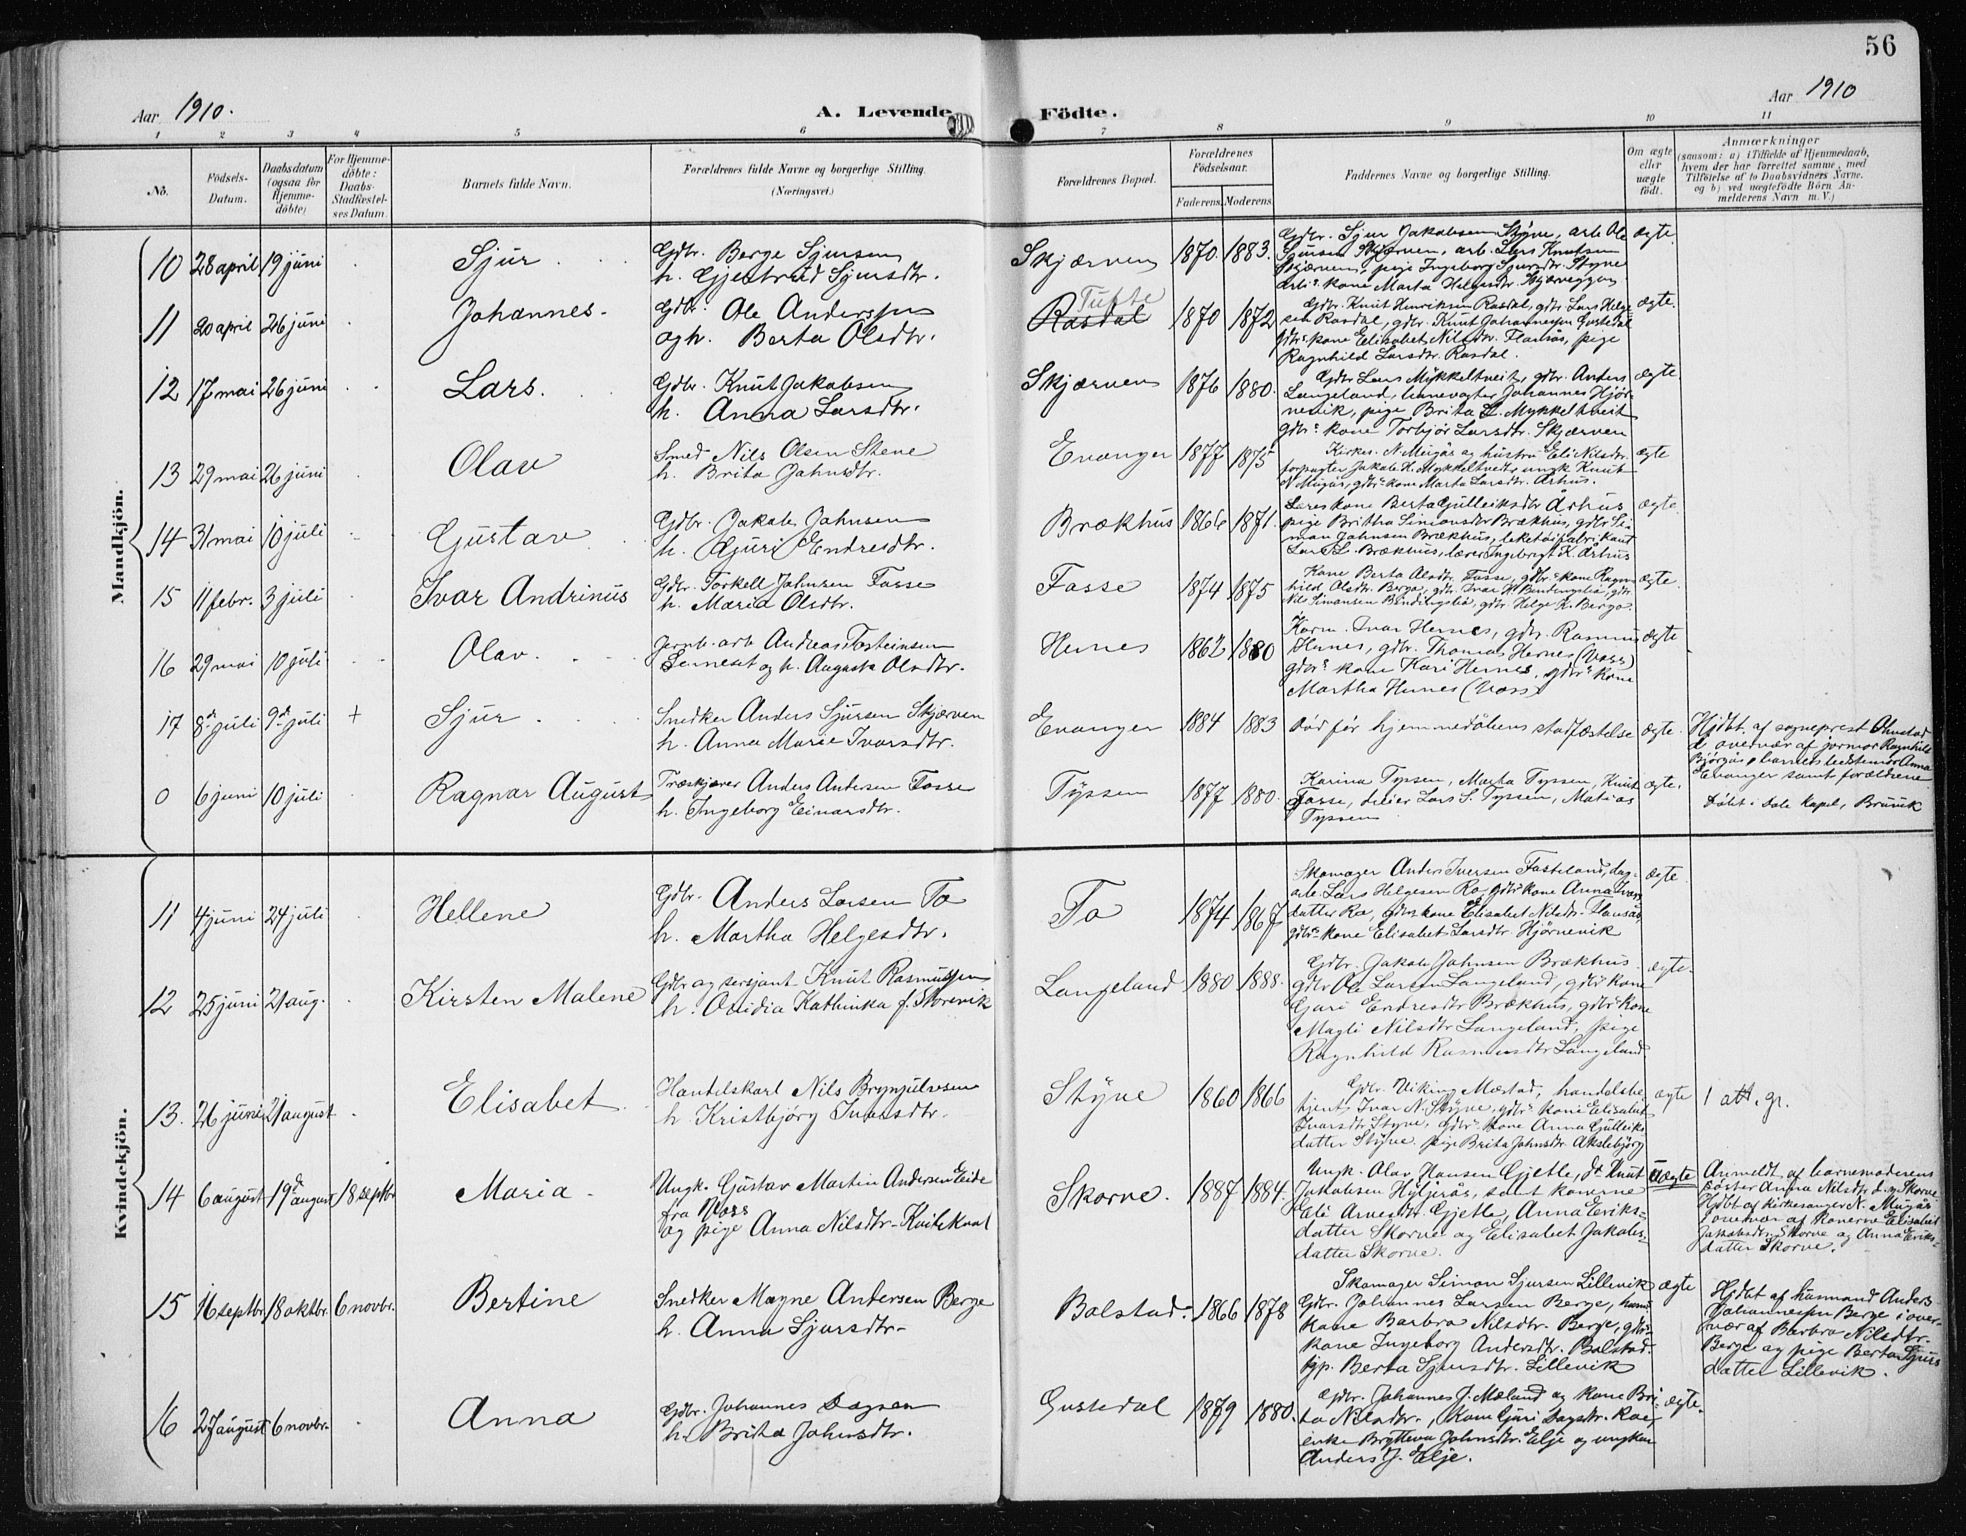 56
Aar 1910.
A. Levende
Fødte.
Aar 1910
1 2 3 4 5 6 7 8 9 10 11
No.
Fødsels-
Datum.
Daabsdatum
(ogsaa for
Hjemme-
døbte)
For Hjemme-
døbte:
Daabs-
Stadfæstel-
ses Datum.
Barnets fulde Navn.
Forældrenes fulde Navne og borgerlige Stilling.
(Næringsvei.)
Forældrenes Bopæl.
Forældrenes
Fødselsaar.
Faderens.
Moderens.
Faddernes Navne og borgerlige Stilling.
Om ægte
eller
uægte
født.
Anmærkninger
(saasom: a) i Tilfælde af Hjemmedaab,
hvem der har forrettet samme, med
Tilføielse af to Daabsvidners Navne.
og b) ved uægtefødte Børn An-
melderens Navn m. V.)
Mandkjön.
10 28 april 19 juni Sjur
Gdbr. Berge Sjursen
h. Gjertrud Sjursdtr.
Skjærven 1870. 1883.
Gdbr. Sjur Jakobsen Styve, arb. Ole
Sjursen Skjærven, arb. Lars Knutsen
Skjærven, pige Ingeborg Sjursdtr. Styve
arbs kone Marta Helgesdtr.
ægte.
11 20 april 26 juni Johannes.
Gdbr. Ole Andersen
og h. Berta Olsdtr.
Tufte
Rasdal 1870 1872
Gdbr. Knut Henriksen Rasdal, gdbr. Lars Helge-
sen Rasdal, gdbr. Knut Johannesen Gustedal
gdbrs kone Elisabet Nilsdtr. Flansås, pige
Ragnhild Larsdtr. Rasdal.
ægte.
12 17 mai 26 juni Lars.
Gdbr. Knut Jakobsen
h. Anna Larsdtr.
Skjærven 1876 1880.
Gdbr Lars Mykkeltveit, gdbr. Anders
Langeland, banevogter Johannes Hjør-
nevik, pige Brita L. Mykkeltveit
gdbrs kone Torbjør Larsdtr. Skjærven
ægte.
13 29 mai 26 juni Olav
Smed Nils Olsen Stene
h. Brita Jahnsdtr.
Evanger 1877 1875
Kirkes. N. Mugås og hustru Eli Nilsdtr.
forpagter Jakob H. Mykkeltvedt, ungk. Knut
N. Mugås, gdbrs kone Marta Larsdtr. Århus.
ægte
14 31 mai 10 juli Gustav
Gdbr. Jakob Jahnsen
h. Guri Endresdtr.
Brækhus 1866 1871.
Læreskone Berta Gulleiksdtr Århus
pige Britha Simonsdtr Brækhus, gdbr Si-
mon Jahnsen Brækhus, leketøifabrikant
Lars L. Brækhus, lærer Ingebrigt K. Århus
ægte.
15 11 febr. 3 juli Ivar Andrinus
Gdbr. Torkell Jahnsen Fosse
h. Maria Olsdtr.
Fosse 1874 1875
Kone Berta Olsdtr. Fosse, gdbrs kone Ragn-
hild Olsdtr. Berge, gdbr. Ivar
Nils Simonsen Bindingslia, gdbr. Helge K. Berge.
ægte.
16 29 mai 10 juli Olav.
Jernb. arb. Andreas Tosteinsen
og h. Augusta Olsdtr.
Hernes 1862 1880
Korm. Ivar Hernes, gdbr. Rasmus
Hernes, gdbr. Thomas Hernes (Voss)
gdbrs kone Kari Hernes, gdbrs kone
Martha Hernes (Voss)
ægte
17 8de juli 9de juli + Sjur
Snedker Anders Sjursen Skjærven
h. Anna Marie Ivarsdtr.
Evanger 1884 1883
Død før hjemmedåbens stadfæstelse ægte.
Hjdbt. af sogneprest Ohnstad
i overvær af jormor Ragnhild
Bjørgås, barnets bedstemor Anna
Evanger samt forældrene
0 6 juni 10 juli Ragnar August
Træskjærer Anders Andersen Fosse
h. Ingeborg Einarsdtr.
Tyssen 1877 1880.
Karina Tyssen, Marta Tyssen, Knut
Fosse, dreier Lars S. Tyssen, Matias
Tyssen
ægte.
Døbt i Dale Kapel, Bruvik
Kvindekjön.
11 4 juni 24 juli Hellene
Gdbr. Anders Larsen Fo
h. Martha Helgesdtr.
Fo 1874 1867
Skomager Anders Iversen Fosteland, dag-
arb. Lars Helgesen Ra, gdbrs kone Anna Ivars
datter Ra, gdbrs kone Elisabet Nilsdtr. Flansås,
gdbrs kone Elisabet Larsdtr Hjørnevik
ægte.
12 25 juni 21 aug. Kirsten Malene
Gdbr og sersjant Knut Rasmussen
h. Ovidia Kathinka f. Storevik
Langeland 1880 1888.
Gdbr. Jakob Jahnsen Brækhus.
gdbr Ole Larsen Langeland, gdbrs kone
Guri Endresdtr Brækhus, gdbrs kone
Magli Nilsdtr Langeland, pige
Ragnhild Rasmusdtr Langeland.
ægte.
13. 26 juni 21 august Elisabet
Handelskarl Nils Brynjulvsen
h Kristbjørg Ivarsdtr.
Styve 1860 1866
Gdbr. Viking Mæstad, handelsbe
tjent Ivar N. Styve, gdbrs kone Elisabet
Ivarsdtr Styve, Gdbrs kone Anna Gulleiks
datter Styve. pige Brita Jahnsdtr. Akslebjørg
ægte
1 att. gr.
14 6 august 19de august 18 septbr Maria
Ungk. Gustav Martin Andersen Eide
fra Voss
og pige Anna Nilsdtr. Kvilekval
Skorve. 1887 1884.
Ungk. Olav Hansen Gjetle, do Knut
Jakobsen Hyljesås, samt konerne
Eli Arnesdtr. Gjetle, Anna Eriks-
datter Skorve og Elisabet Jakobs-
datter Skorve.
Uægte
Anmeldt af barnemoderens
søster Anna Nilsdtr. Skorve.
Hjdbt af kirkesanger N. Mugås
i overvær af konerne Elisabet
Jakobsdtr. Skorve og Anna Eriks-
datter Skorve.
15 16 septbr. 18 oktbr. 6 novbr. Bertine
Snedker Magne Andersen Berge
h. Anna Sjursdtr.
Bolstad. 1866 1878
Skomager Simon Sjursen Lillevik
Gdbr. Johannes Larsen Berge, husm
kone Barbra Nilsdtr. Berge, gdbrs
kone Ingeborg Andersdtr. Bolstad.
tjp. Berta Sjursdtr. Lillevik
ægte
Hjdbt af husmand Anders
Johannesen Berge i over-
vær af Barbra Nilsdtr.
Berge og pige Berta Sjurs
datter Lillevik.
16 27 august 6 novbr. Anna
Gdbr. Johannes Dagsen
h. Brita Jahnsdtr.
Gustedal 1879 1880.
Gdbr. Johannes J. Mæland og kone Bri-
ta Nilsdtr., Kone Guri Dagsdtr. Ra,
enke Brytteva Jahnsdtr. Elje og ungkar
Anders J. Elje.
ægte.